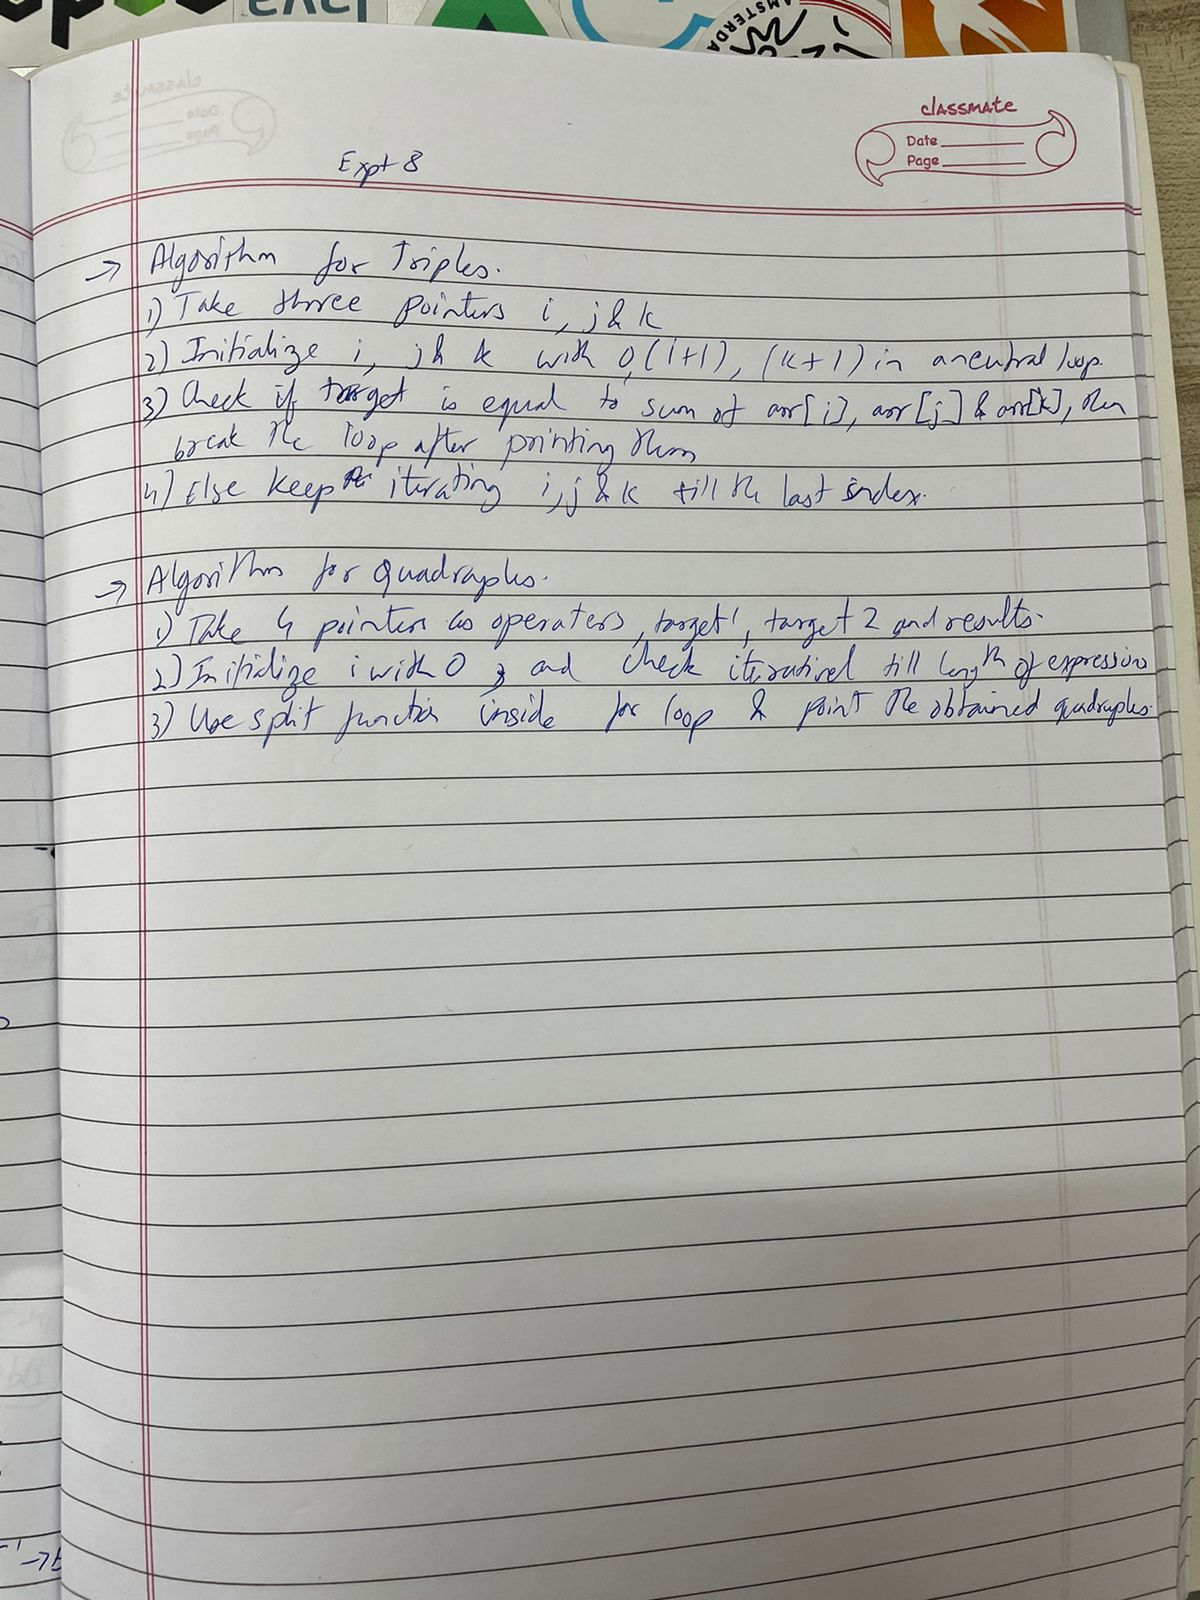 classmate
Date
Page
Expt 8
→ Algorithm for Triples.
1) Take three pointers i, j & k
2) Initialize i, j & k with 0, (i+1), (k+1) in a neutral loop.
3) Check if target is equal to sum of arr[i], arr[j] & arr[k], then
break the loop after printing them
4) Else keep iterating i, j & k till the last index.
→ Algorithm for Quadraples.
1) Take 4 pointers as operaters, target1, target 2 and results.
2) Initialize i with 0 ; and check iterativel till length of expression
3) Use split function inside for loop & point the obtained quadruples.